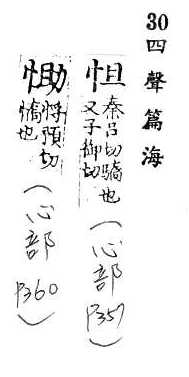 30 四聲篇海
怚
秦呂切驕也
又子御切
(心部 P357)
將預切
憍也
(心部 P360)